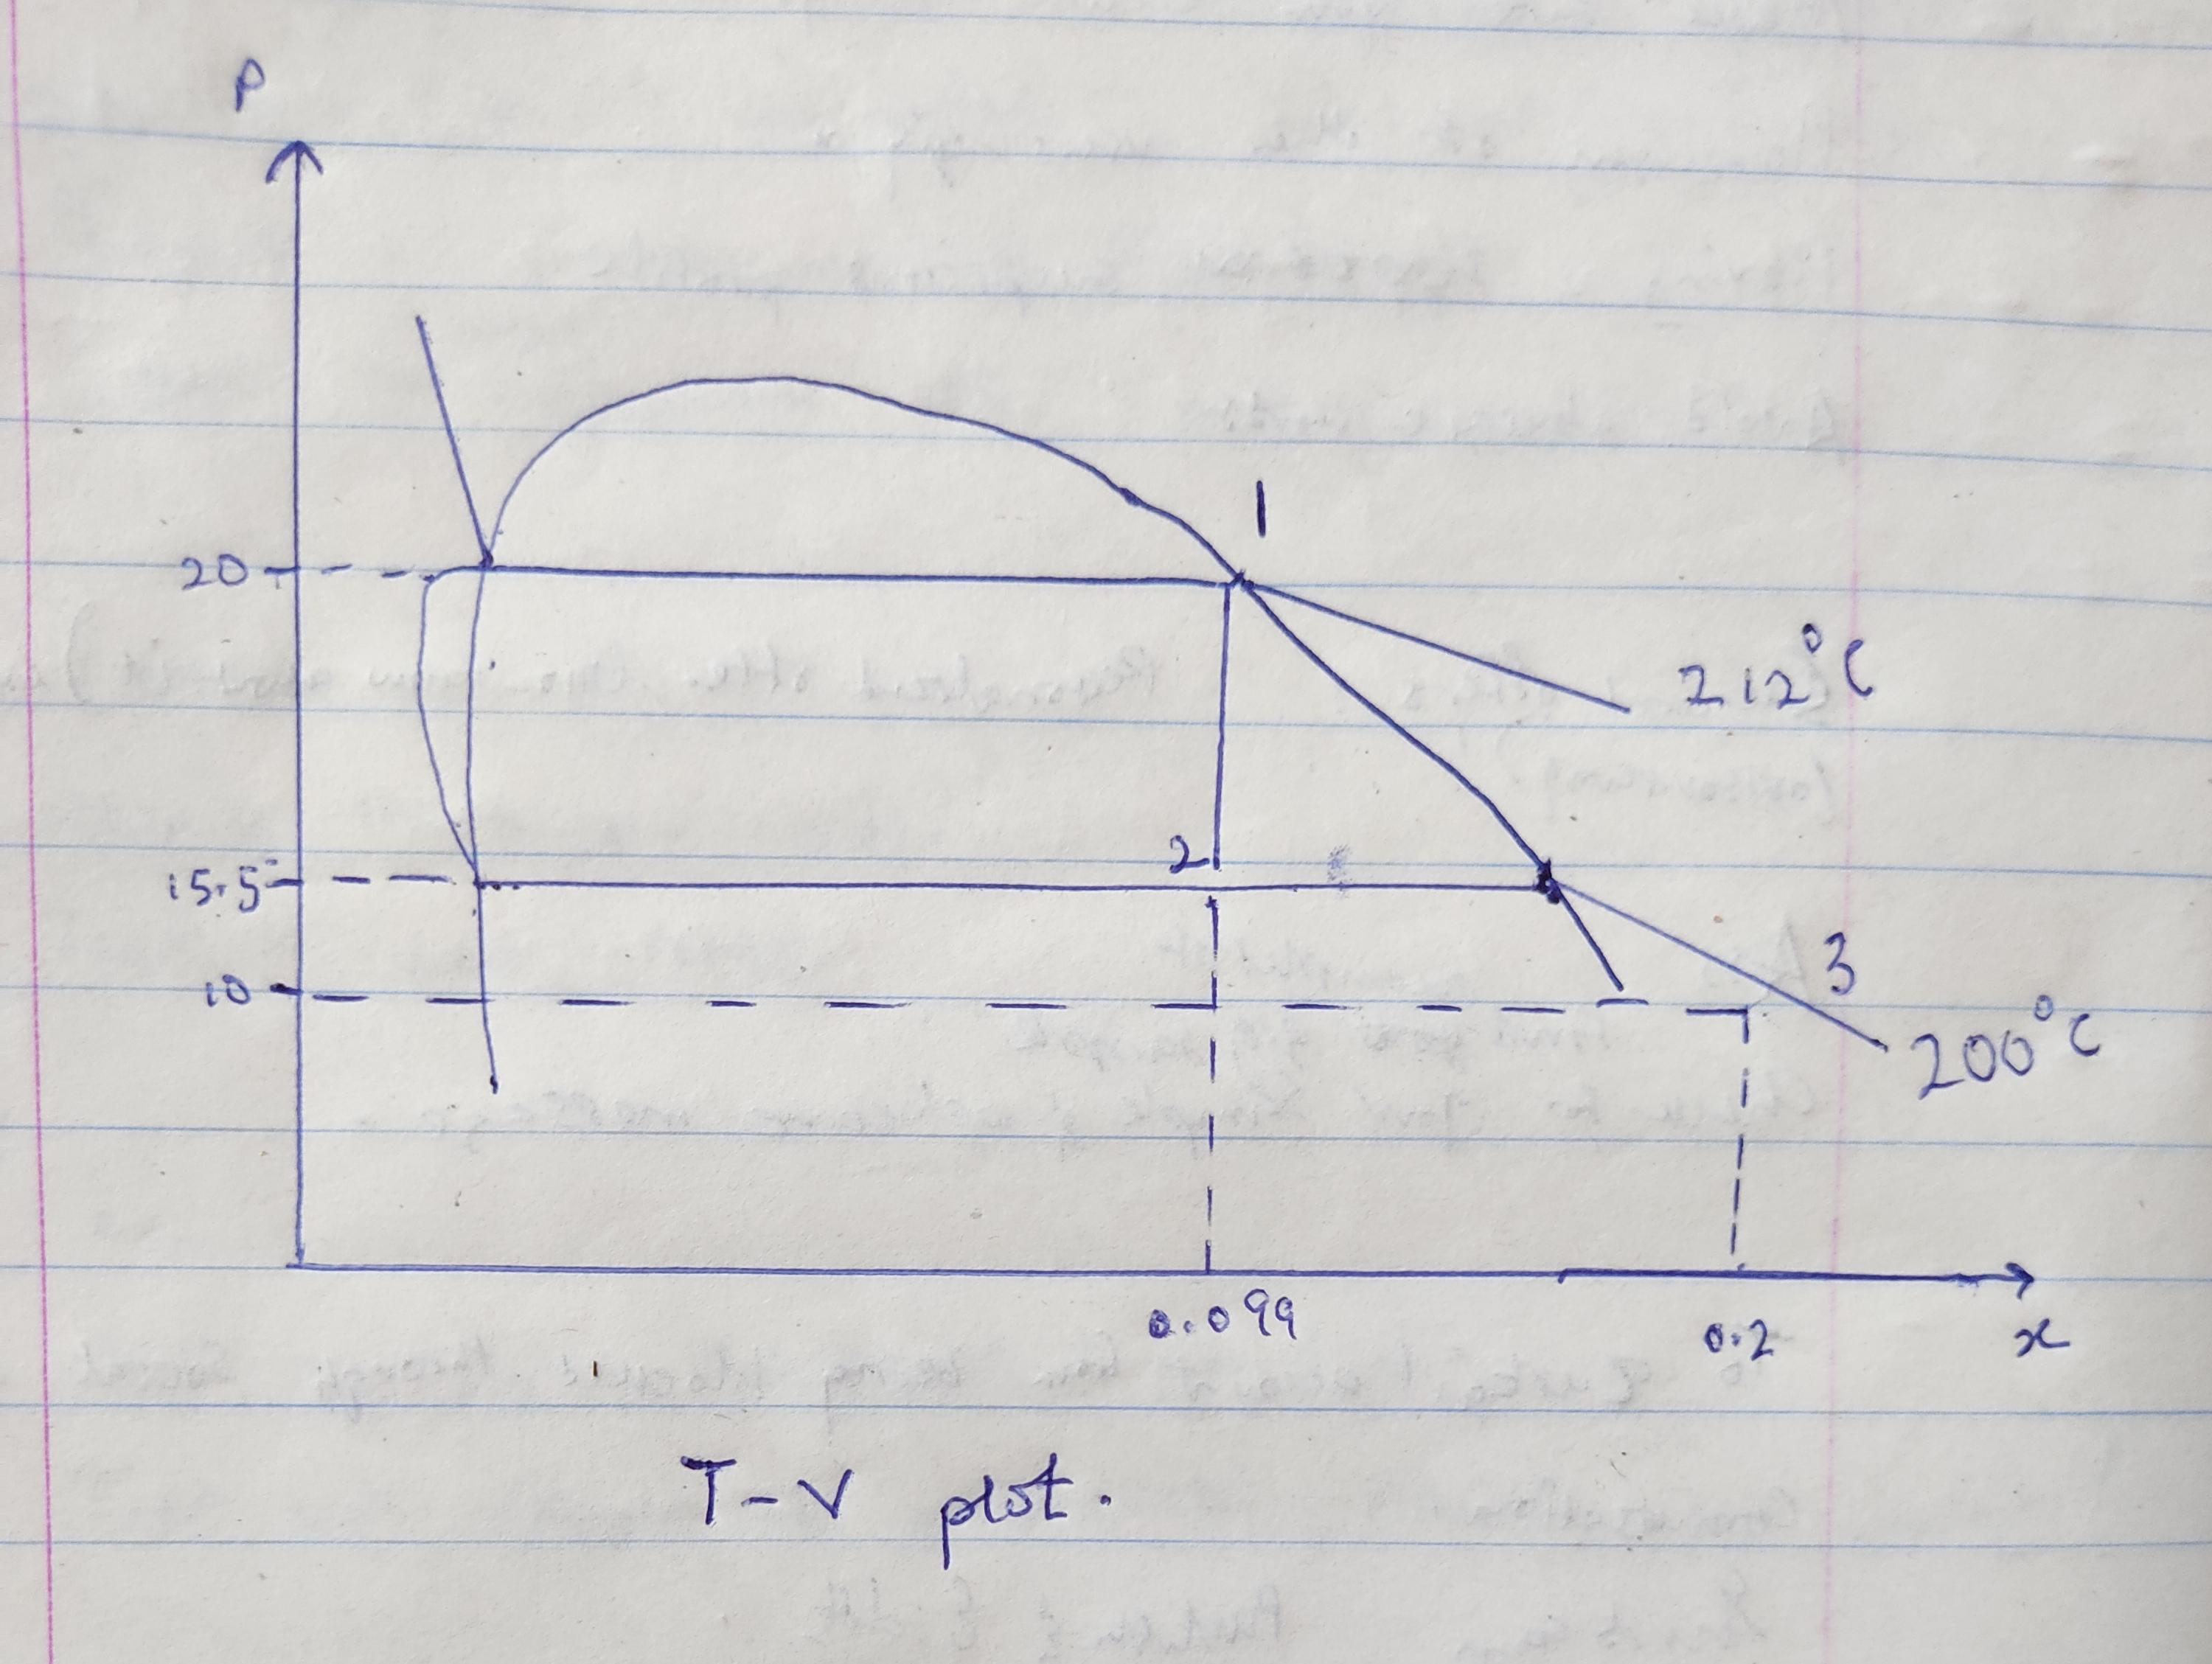 P
1
20
212°C
2
15.5
3
10
200°C
0.099
0.2
x
T-V plot.